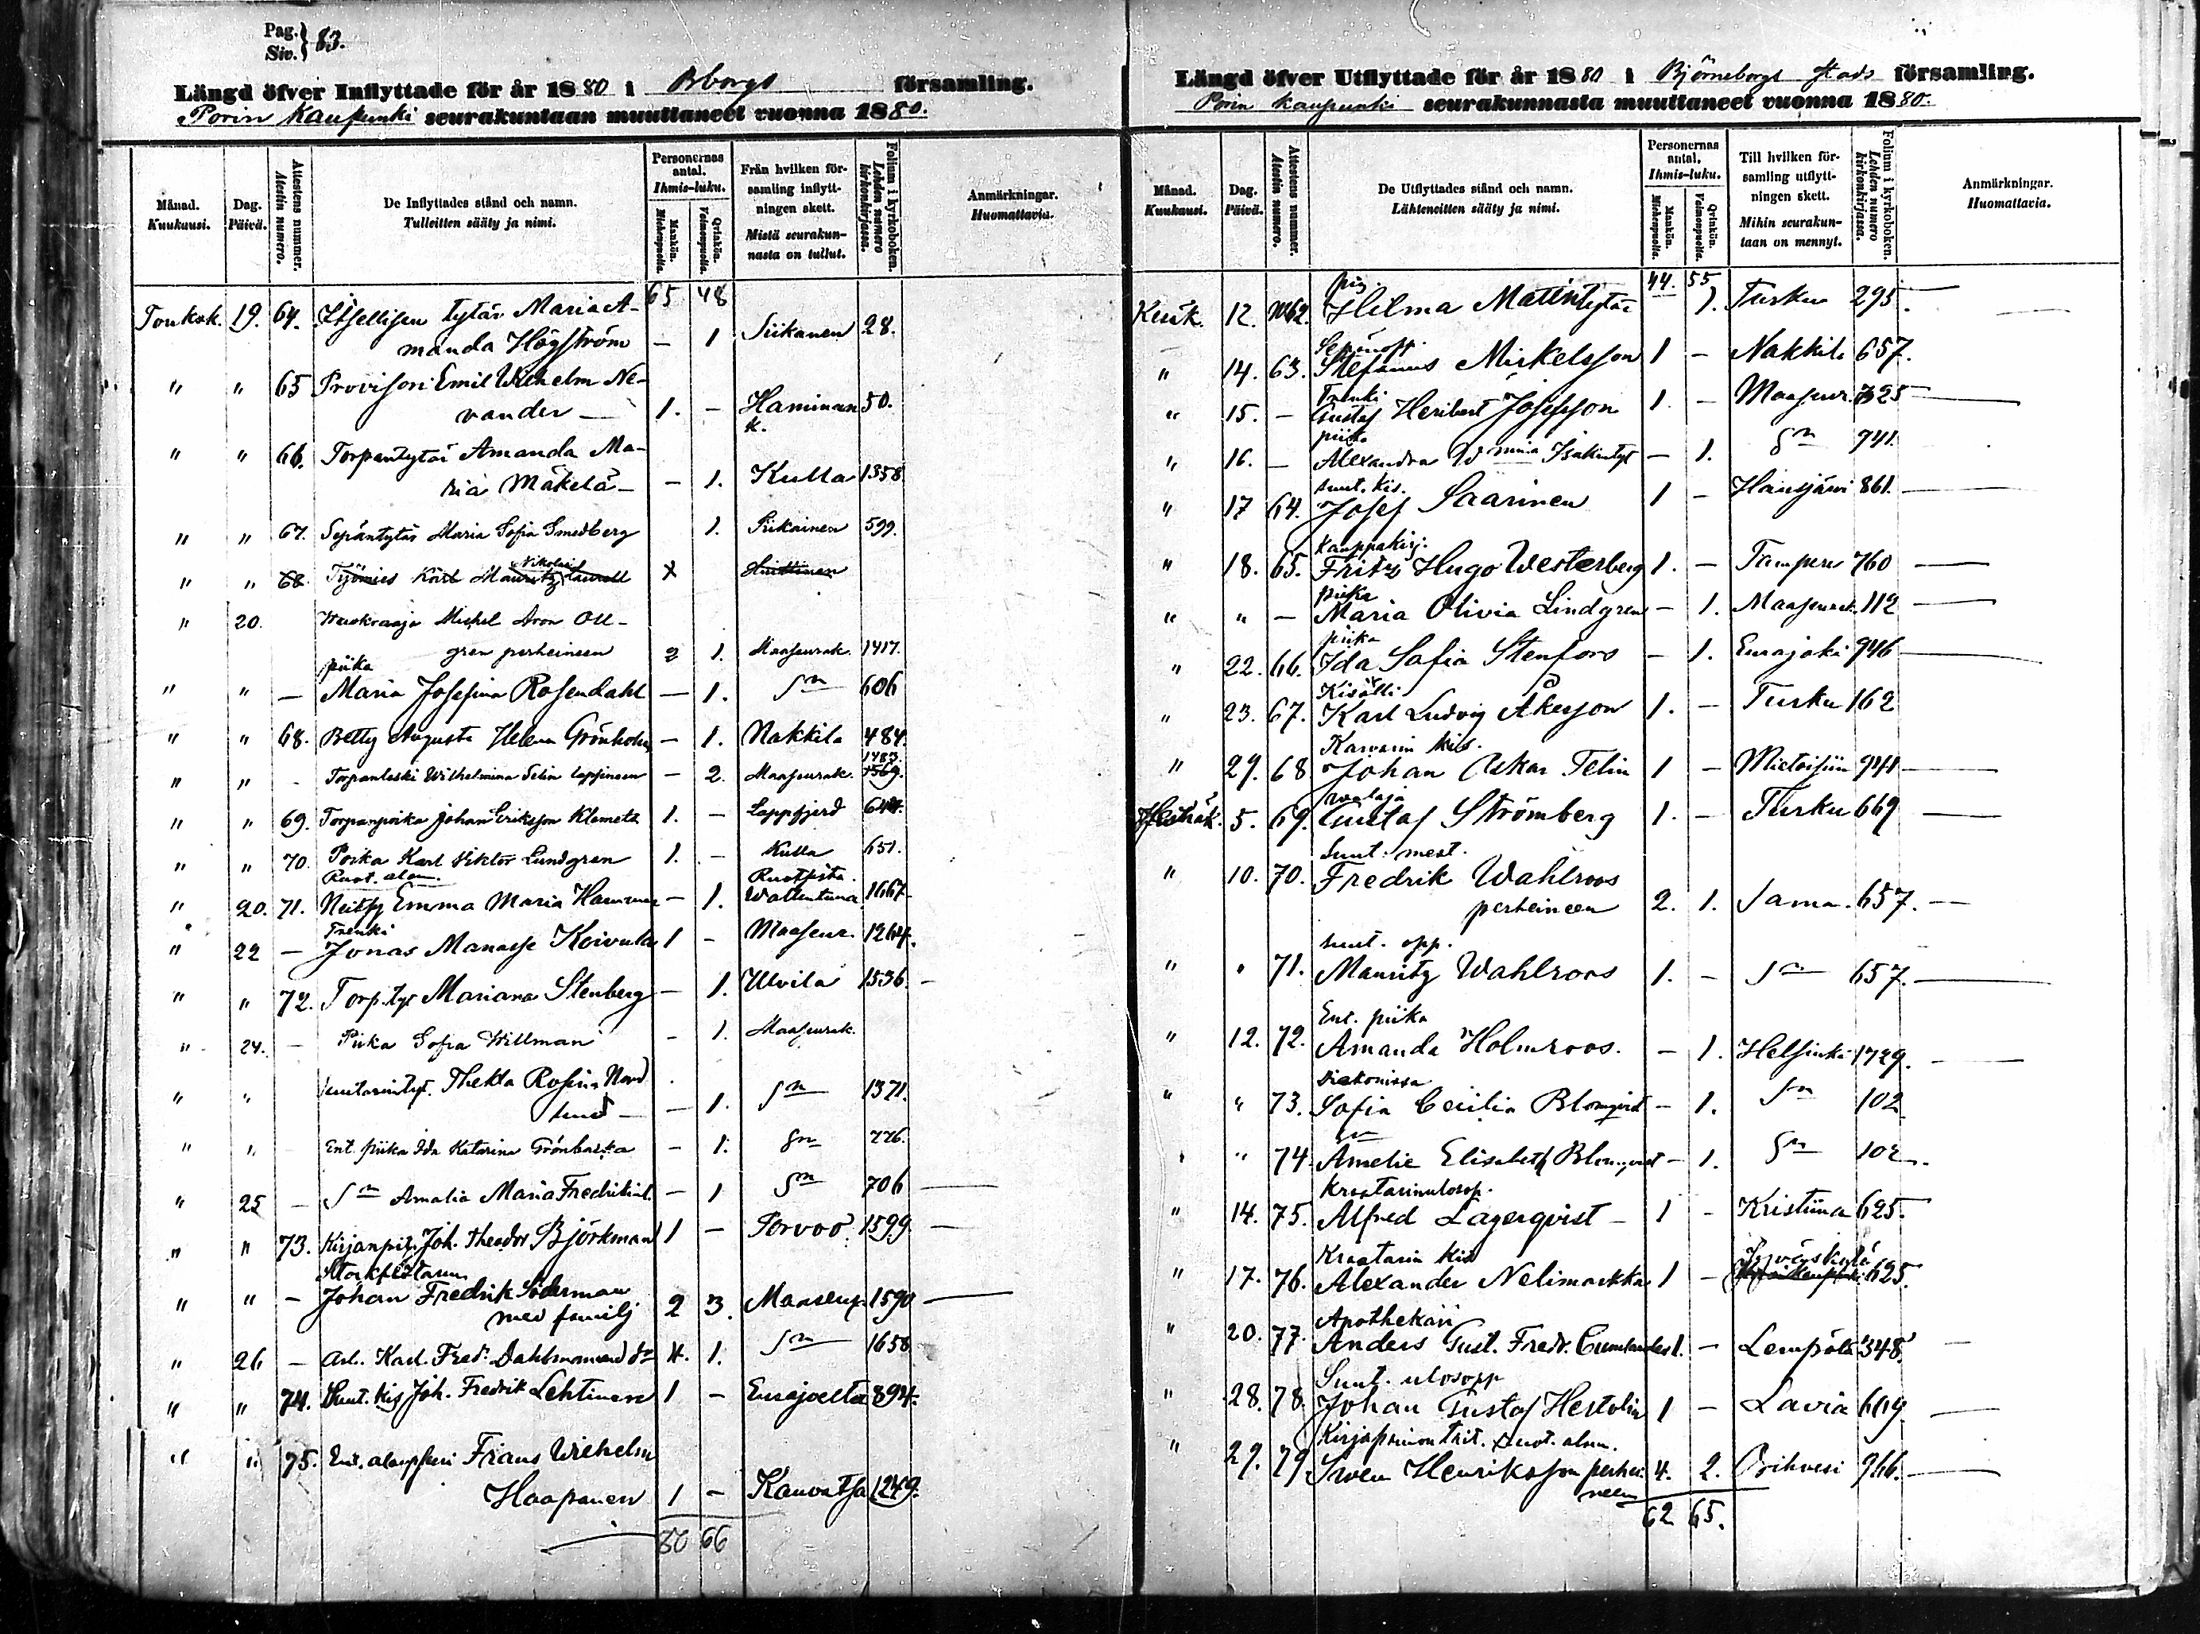 Pag. Siv. } 83.
Längd öfver Inflyttade för år 1880 i Bborgs församling.
Porin Kaupunki seurakuntaan muuttaneet vuonna 1880.
Månad. Kuukausi.
Dag. Päivä.
Attestens nummer. Atestin numero.
De Inflyttades stånd och namn. Tulleitten sääty ja nimi.
Personernas antal. Ihmis-luku.
Mankön. Miehenpuolia.
Qvinkön. Vaimonpuolia.
Från hvilken församling inflyttningen skett. Mistä seurakunnasta on tullut.
Folium i kyrkoboken. Lehden numero kirkonkirjassa.
Anmärkningar. Huomattavia.
65 48
Toukok. 19. 64. Itsellisen tytär Maria A-
manda Högström — 1 Siikanen 28.
" " 65 Provisori Emil Wilhelm Ne-
vander — 1. — Haminan k. 50.
" " 66. Torpantytär Amanda Ma-
ria Mäkelä — — 1. Kulla 1358
" " 67. Sepäntytär Maria Sofia Smedberg 1. Siikainen 599.
" " 68 Työmies Karl Mauritz Nikolai Laurell X Huittinen
" 20. Michel Aron Ell-
gren perheineen 2 1. Maaseurak. 1417.
piika
" " — Maria Josefina Rosendahl — 1. Dn 606
" " 68. Betty Augusta Helena Grönholm — 1. Nakkila 484.
1483.
" " - Torpanleski Wilhelmina Selin lappineen — 2. Maaseurak. 1569.
" " 69. Torpanpoika Johan Eriksson Klemets 1. — Lappfjerd 644.
" " 70. Poika Karl Viktor Lundgren 1. — Kulla 651.
Ruot. alam.
" 20. 71. Neitsy Emma Maria Hammar — 1. Ruotsista. Wallentuna 1667
Trenki
" 22 — Jonas Manasse Koivula 1 - Maaseur. 1264.
" " 72. Torp. tyt Mariana Stenberg — 1. Ulvila 1536 —
" 24. — Piika Sofia Willman - 1. Maaseurak.
" " Suutarintyt. Thekla Rosina Nord
lund — — 1. Dn 1371.
" " Ent. piika Ida Katarina Grönbacka — 1. Dn 776.
" 25 — Dn Amalia Maria Fredrikint. — 1 Dn 706
" " 73. Kirjanpit. Joh. Theodor Björkman 1 — Porvoo 1599. —
" " — Johan Fredrik Söderman
med familj 2 3. Maaseur. 1590
" 26 — Arb. Karl. Fredr. Dahlman 4. 1. Dn 1658
" " 74. Suut. kis Joh. Fredrik Lehtinen 1 — Eurajoelta 894.
" " 75. Ent. Frans Wilhelm
Haapanen 1 — Kauvatsa 1249.
80 66
Längd öfver Utflyttade för år 1880 i Björneborgs stads församling.
Porin kaupunki seurakunnasta muuttaneet vuonna 1880.
Månad. Kuukausi.
Dag. Päivä.
Attestens nummer. Atestin numero.
De Utflyttades stånd och namn. Lähteneitten sääty ja nimi.
Personernas antal. Ihmis-luku.
Mankön. Miehenpuolia.
Qvinkön. Vaimonpuolia.
Till hvilken församling utflyttningen skett. Mihin seurakuntaan on mennyt.
Folium i kyrkoboken. Lehden numero kirkonkirjassa.
Anmärkningar. Huomattavia.
44. 55
pig.
Kesäk. 12. N62. Hilma Matintytär 1. Turku 295.
Sepänopp.
" 14. 63. Stefanus Mickelsson 1 — Nakkila 657.
Trenki
" 15. — Gustaf Heribert Josefsson 1. - Maaseur. 325
piika
" 16. — Alexandra Wmina Isakintyt — 1. Dn 741.
suut. kis.
" 17 64. Josef Saarinen 1 - Hausjärvi 861.
Kauppakirj.
" 18. 65. Fritz Hugo Westerberg 1. — Tampere 760
piika
" " — Maria Olivia Lindgren — 1. Maaseurak. 112
piika
" 22. 66. Ida Sofia Stenfors — 1. Eurajoki 946
Kisälli
" 23. 67. Karl Ludvig Åkesson 1. - Turku 162
Karvarin kis.
" 29. 68 Johan Oskar Telin 1 — Mietoisiin 941
valaja
Heinäk. 5. 69. Gustaf Strömberg 1. — Turku 669
Suut. mest.
" 10. 70. Fredrik Wahlroos
perheineen 2. 1. Sama. 657. —
suut. opp.
" " 71. Mauritz Wahlroos 1. - Dn 657.
Ent. piika
" 12. 72. Amanda Holmroos. — 1. Helsinki 1729.
Diakonissa
" " 73. Sofia Cecilia Blomqvist — 1. Dn 102
Dn
" " 74. Amelie Elisabeth Blomqvist — 1. Dn 102.
" 14. 75. Alfred Lagerqvist — 1 - Kristiina 625.
Kraatarin kis
" 17. 76. Alexander Nelimarkka 1 — Jyväskylä 625.
Apothekari
" 20. 77 Anders Gust. Fredr. 1. — Lempälä 348. —
Suut. ulosopp
" 28. 78. Johan Gustaf Hertolin 1 — Lavia 609
Kirjapainon ruot. alam.
" 29. 79. Sven Henriksson perhei-
neen 4. 2. Orihvesi 966.
62 65.